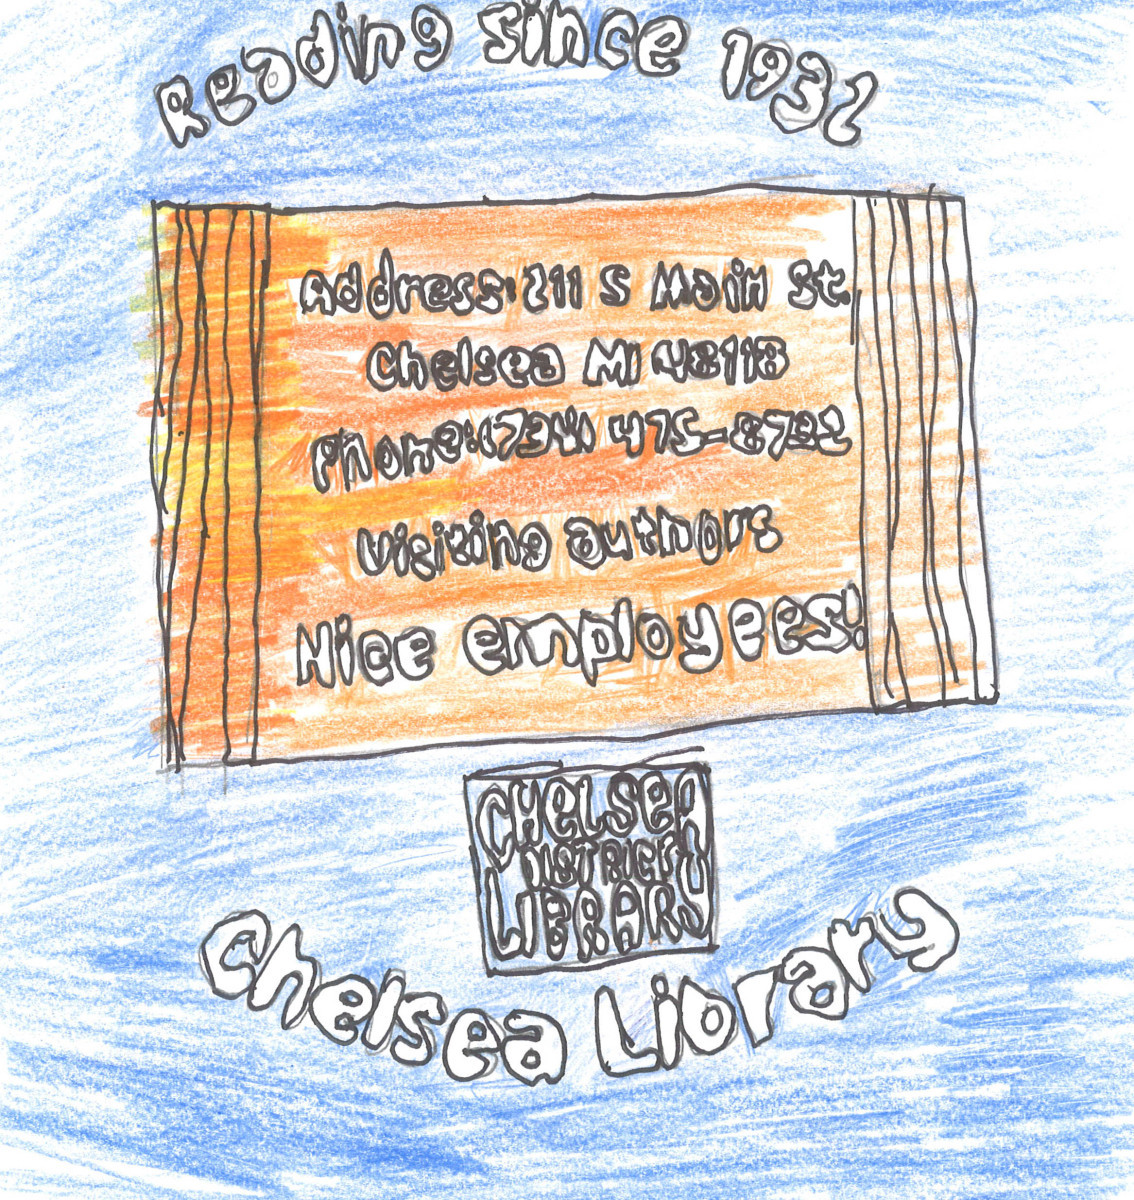 Reading since 1932
Address: 211 S Main St.
Chelsea MI 48118
Phone: (734) 475-8732
Visiting authors
Nice employees!
CHELSEA
DISTRICT
LIBRARY
Chelsea Library